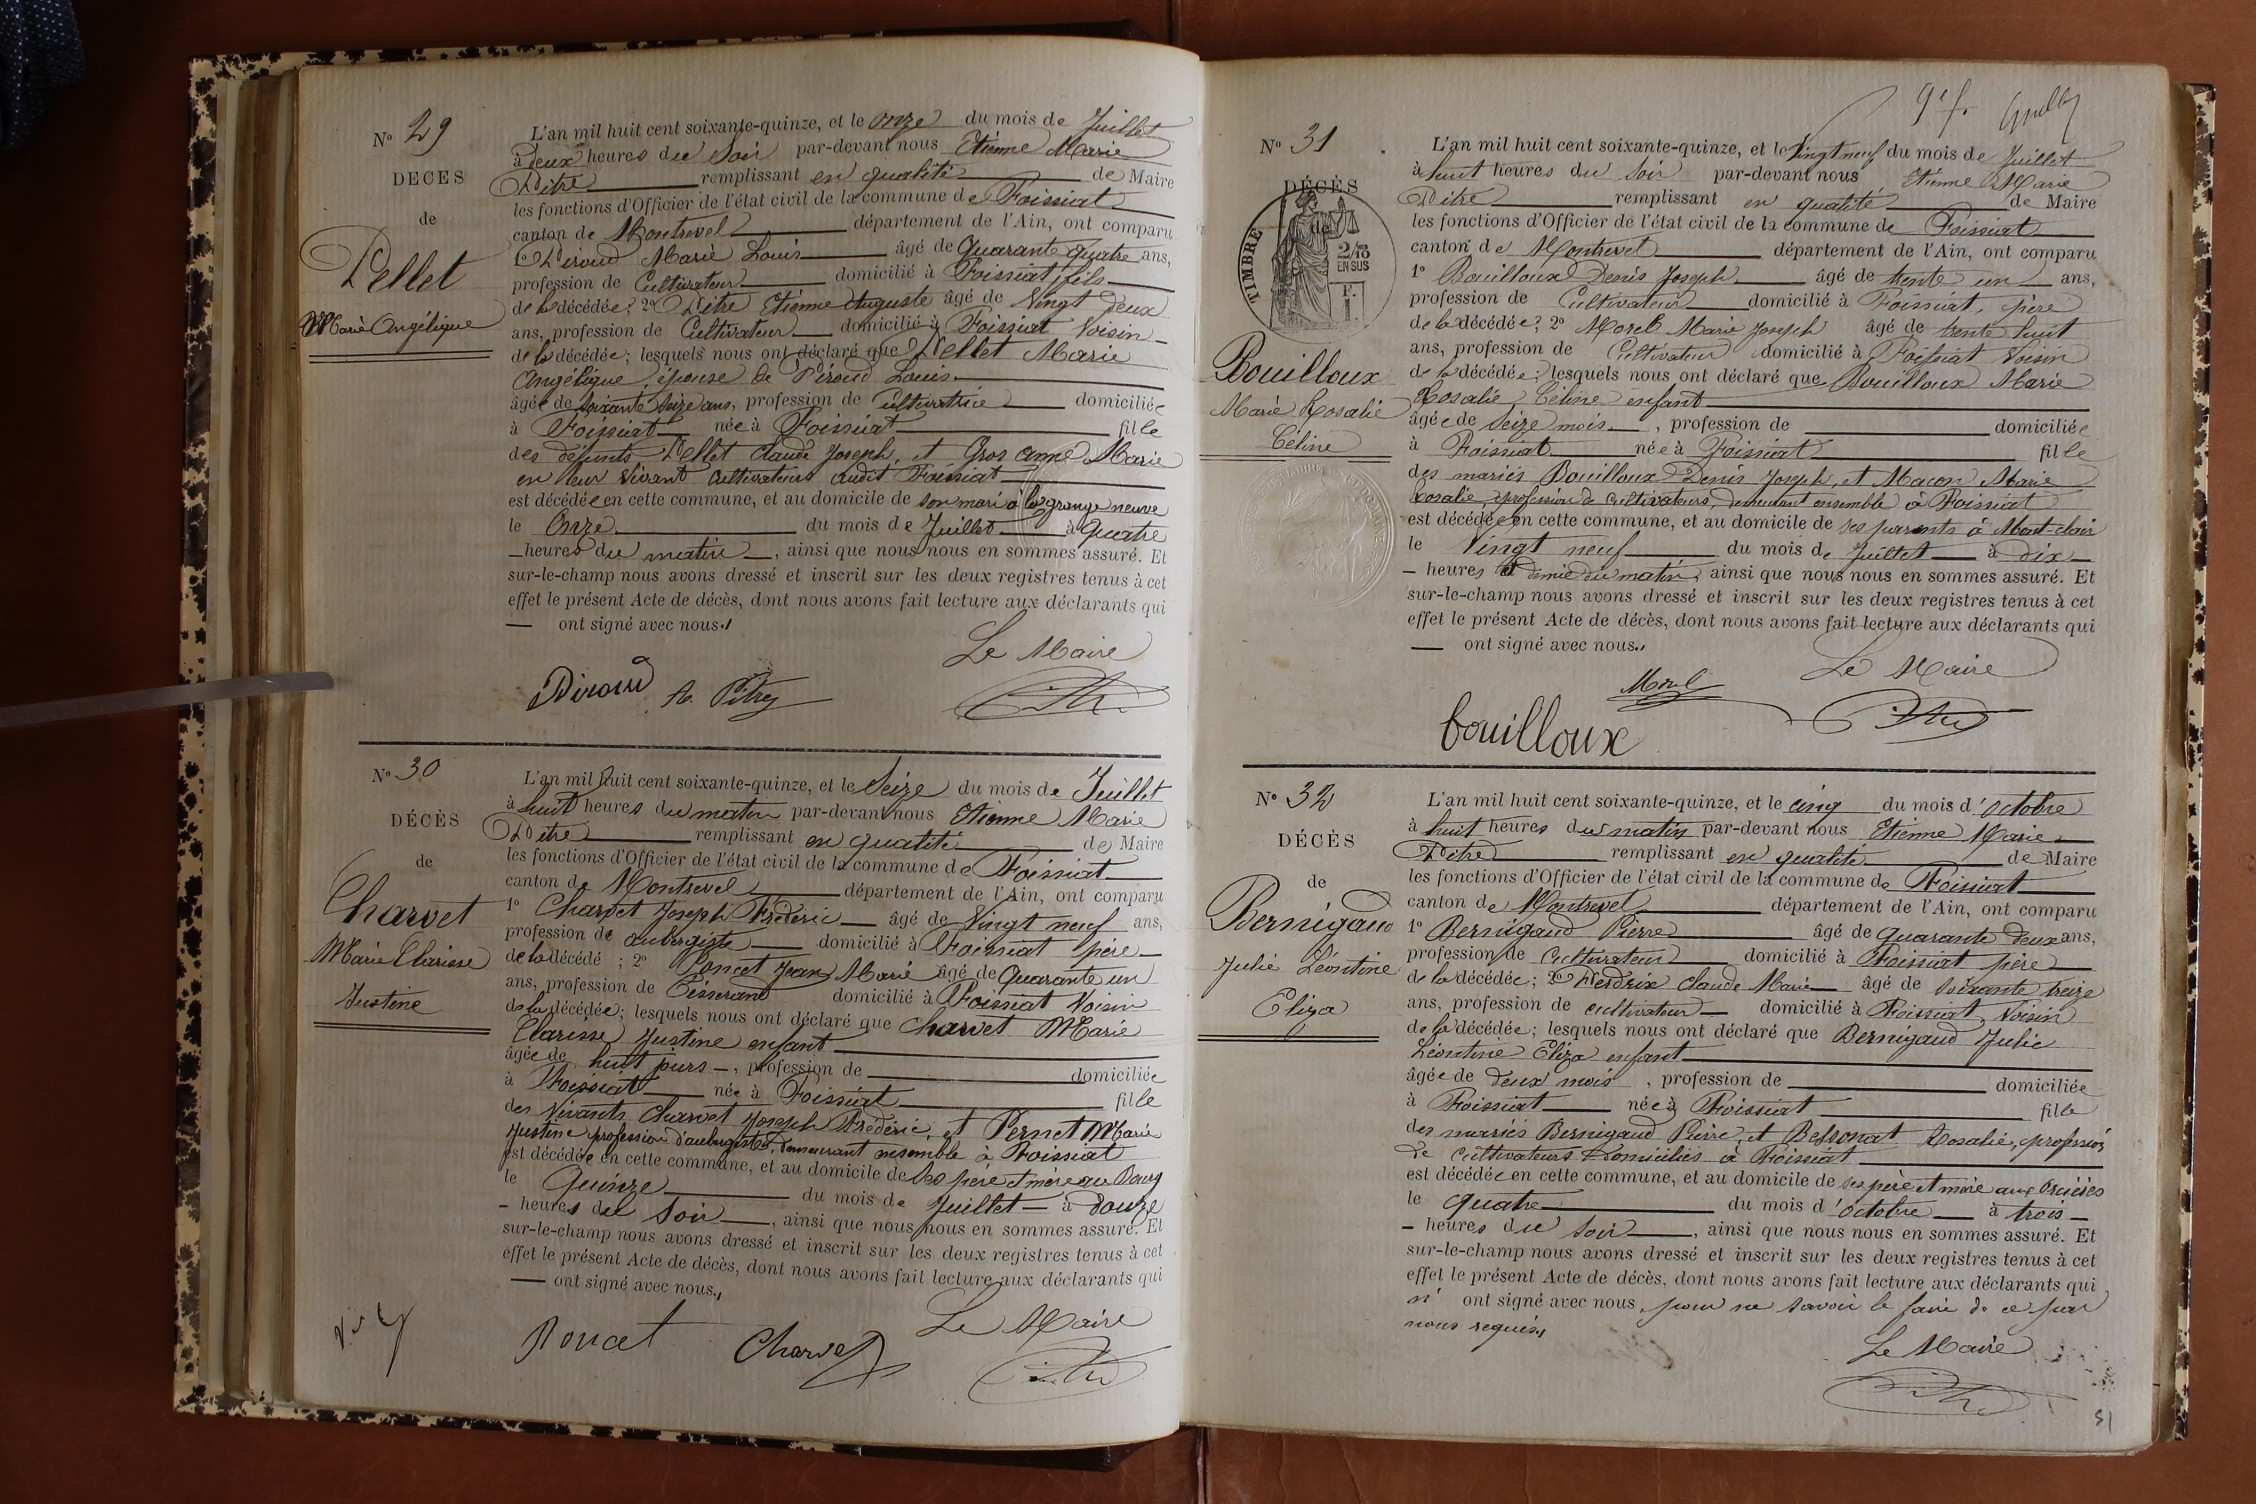 N° 29
DÉCÈS
de
Pellet
Marie Angélique
L'an mil huit cent soixante-quinze, et le onze du mois de Juillet
à deux heures du soir par-devant nous Etienne Marie
Pitre remplissant en qualité de Maire
les fonctions d'Officier de l'état civil de la commune de Foissiat
canton de Montrevel département de l'Ain, ont comparu
1° Piroud Marie Louis âgé de quarante quatre ans,
profession de Cultivateur domicilié à Foissiat, fils
de la décédée; 2° Pitre Etienne Auguste âgé de Vingt deux
ans, profession de Cultivateur domicilié à Foissiat Voisin
de la décédée; lesquels nous ont déclaré que Pellet Marie
Angélique, épouse de Piroud Louis
âgée de soixante seize ans, profession de Cultivatrice domiciliée
à Foissiat née à Foissiat fille
des défunts Pellet Claude Joseph, et Gros Anne Marie
en leur vivant cultivateurs audit Foissiat
est décédée en cette commune, et au domicile de son mari à la grange neuve
le Onze du mois de Juillet à Quatre
heures du matin, ainsi que nous nous en sommes assuré. Et
sur-le-champ nous avons dressé et inscrit sur les deux registres tenus à cet
effet le présent Acte de décès, dont nous avons fait lecture aux déclarants qui
ont signé avec nous.
Le Maire
Piroud A. Pitre
N° 30
DÉCÈS
de
Charvet
Marie Clarisse
Justine
L'an mil huit cent soixante-quinze, et le Seize du mois de Juillet
à huit heures du matin par-devant nous Etienne Marie
Pitre remplissant en qualité de Maire
les fonctions d'Officier de l'état civil de la commune de Foissiat
canton de Montrevel département de l'Ain, ont comparu
1° Charvet Joseph Frédéric âgé de Vingt neuf ans,
profession de aubergiste domicilié à Foissiat père
de la décédé ; 2° Poncet Jean Marie âgé de Quarante un
ans, profession de Tisserand domicilié à Foissiat Voisin
de la décédée; lesquels nous ont déclaré que Charvet Marie
Clarisse Justine enfant
âgée de huit jours, profession de domiciliée
à Foissiat née à Foissiat fille
des Vivants Charvet Joseph Frédéric, et Pernet Marie
Justine profession d'aubergistes, demeurant ensemble à Foissiat
est décédée en cette commune, et au domicile de ses père et mère au Bourg
le Quinze du mois de Juillet à douze
heures du soir, ainsi que nous nous en sommes assuré. Et
sur-le-champ nous avons dressé et inscrit sur les deux registres tenus à cet
effet le présent Acte de décès, dont nous avons fait lecture aux déclarants qui
ont signé avec nous.
Le Maire
Poncet Charvet
9e f.
N° 31
DÉCÈS
de
TIMBRE
2/10
EN SUS
F.
1
Bouilloux
Marie Rosalie
Céline
L'an mil huit cent soixante-quinze, et le Vingt neuf du mois de Juillet
à huit heures du soir par-devant nous Etienne Marie
Pitre remplissant en qualité de Maire
les fonctions d'Officier de l'état civil de la commune de Foissiat
canton de Montrevel département de l'Ain, ont comparu
1° Bouilloux Denis Joseph âgé de trente un ans,
profession de Cultivateur domicilié à Foissiat, père
de la décédée; 2° Morel Marie Joseph âgé de trente huit
ans, profession de Cultivateur domicilié à Foissiat Voisin
de la décédée; lesquels nous ont déclaré que Bouilloux Marie
Rosalie Céline enfant
âgée de seize mois, profession de domiciliée
à Foissiat née à Foissiat fille
des mariés Bouilloux Denis Joseph, et Macon Marie
Rosalie, profession de cultivateurs, demeurant ensemble à Foissiat
est décédée en cette commune, et au domicile de ses parents à Mont-clair
le Vingt neuf du mois de Juillet à dix
heures et demie du matin, ainsi que nous nous en sommes assuré. Et
sur-le-champ nous avons dressé et inscrit sur les deux registres tenus à cet
effet le présent Acte de décès, dont nous avons fait lecture aux déclarants qui
ont signé avec nous.
Le Maire
Morel
bouilloux
N° 32
DÉCÈS
de
Bernigaud
Julie Léontine
Eliza
L'an mil huit cent soixante-quinze, et le cinq du mois d'octobre
à huit heures du matin par-devant nous Etienne Marie
Pitre remplissant en qualité de Maire
les fonctions d'Officier de l'état civil de la commune de Foissiat
canton de Montrevel département de l'Ain, ont comparu
1° Bernigaud Pierre âgé de quarante deux ans,
profession de Cultivateur domicilié à Foissiat père
de la décédée; 2° Perdrix Claude Marie âgé de soixante treize
ans, profession de cultivateur domicilié à Foissiat, Voisin
de la décédée; lesquels nous ont déclaré que Bernigaud Julie
Léontine Eliza enfant
âgée de deux mois, profession de domiciliée
à Foissiat née à Foissiat fille
des mariés Bernigaud Pierre, et Bessonat Rosalie, profession
de cultivateurs domiciliés à Foissiat
est décédée en cette commune, et au domicile de ses père et mère aux
le quatre du mois d'octobre à trois
heures du soir, ainsi que nous nous en sommes assuré. Et
sur-le-champ nous avons dressé et inscrit sur les deux registres tenus à cet
effet le présent Acte de décès, dont nous avons fait lecture aux déclarants qui
n' ont signé avec nous, pour ne savoir le faire de ce par
nous requis.
Le Maire
51